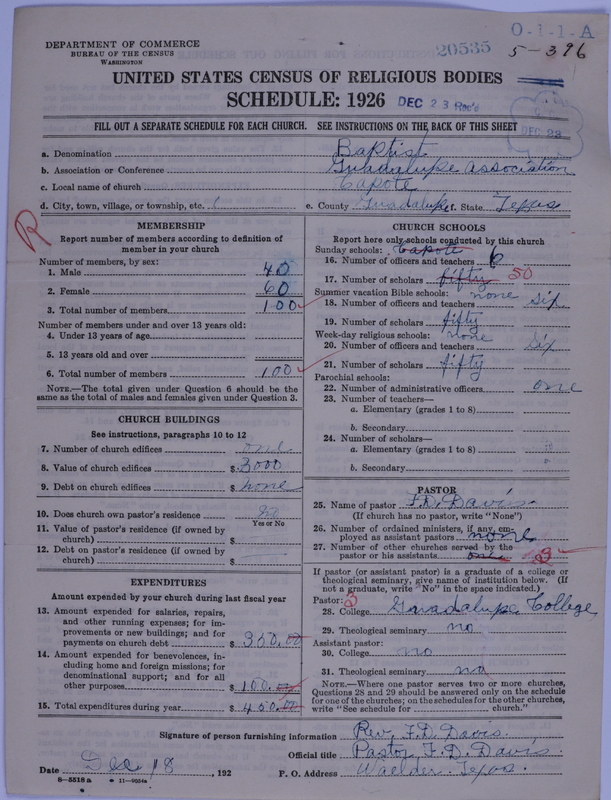 O-1-1-A
20535
5-396
DEPARTMENT OF COMMERCE
BUREAU OF THE CENSUS
WASHINGTON
UNITED STATES CENSUS OF RELIGIOUS BODIES
SCHEDULE: 1926
DEC 23 Rec'd
DEC 23
FILL OUT A SEPARATE SCHEDULE FOR EACH CHURCH. SEE INSTRUCTIONS ON THE BACK OF THIS SHEET
a. Denomination Baptist
b. Association or Conference Guadalupe Association
c. Local name of church Capote
d. City, town, village, or township, etc.
e. County Guadalupe f. State Texas
R
MEMBERSHIP
Report number of members according to definition of
member in your church
Number of members, by sex:
1. Male 40
2. Female 60
3. Total number of members 100
Number of members under and over 13 years old:
4. Under 13 years of age
5. 13 years old and over
6. Total number of members 100
NOTE.—The total given under Question 6 should be
the same as the total of males and females given under Question 3.
CHURCH BUILDINGS
See instructions, paragraphs 10 to 12
7. Number of church edifices one
8. Value of church edifices $ 3000
9. Debt on church edifices $ none
10. Does church own pastor's residence No
Yes or No
11. Value of pastor's residence (if owned by
church) $
12. Debt on pastor's residence (if owned by
church) $
EXPENDITURES
Amount expended by your church during last fiscal year
13. Amount expended for salaries, repairs,
and other running expenses; for im-
provements or new buildings; and for
payments on church debt $ 300.00
14. Amount expended for benevolences, in-
cluding home and foreign missions; for
denominational support; and for all
other purposes $ 100.00
15. Total expenditures during year $ 400.00
CHURCH SCHOOLS
Report here only schools conducted by this church
Sunday schools: Capote
16. Number of officers and teachers 6
17. Number of scholars fifty 50
Summer vacation Bible schools: none
18. Number of officers and teachers six
19. Number of scholars fifty
Week-day religious schools: none
20. Number of officers and teachers six
21. Number of scholars fifty
Parochial schools:
22. Number of administrative officers one
23. Number of teachers—
a. Elementary (grades 1 to 8)
b. Secondary
24. Number of scholars—
a. Elementary (grades 1 to 8)
b. Secondary
PASTOR
25. Name of pastor F.D. Davis
(If church has no pastor, write "None")
26. Number of ordained ministers, if any, em-
ployed as assistant pastors none
27. Number of other churches served by the
pastor or his assistants one 2
If pastor (or assistant pastor) is a graduate of a college or
theological seminary, give name of institution below. (If
not a graduate, write "No" in the space indicated.)
Pastor: 3
28. College Guadalupe College
29. Theological seminary no
Assistant pastor:
30. College no
31. Theological seminary no
NOTE.—Where one pastor serves two or more churches,
Questions 28 and 29 should be answered only on the schedule
for one of the churches; on the schedules for the other churches,
write "See schedule for church."
Signature of person furnishing information Rev. F.D. Davis.
Official title Pastor F.D. Davis.
Date Dec 18, 192
P. O. Address Waelder Texas.
8-5518 a
11-9054